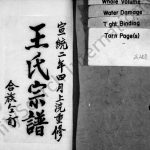 宣統二年四月上浣重修
王氏宗譜
合族公訂
Whole Volume
Water Damage
Tight Binding
Torn Page(s)